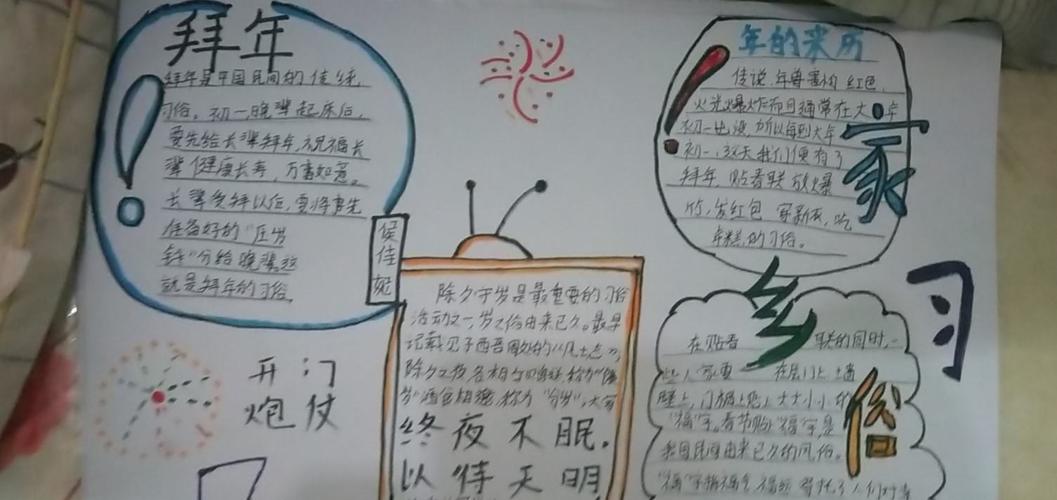 拜年
拜年是中国民间的传统
习俗。初一,晚辈起床后,
要先给长辈拜年,祝福长
辈健康长寿,万事如意。
长辈受拜以后,要将事先
准备好的"压岁
钱"分给晚辈这
就是拜年的习俗。
侯佳妮
年的来历
传说,年兽害怕红色,
火光爆炸而且通常在大年
初一出没,所以每到大年
初一,这天我们便有了
拜年,贴春联放爆
竹,发红包 穿新衣,吃
年糕的习俗。
家
乡
习
俗
除夕守岁是最重要的习俗
活动之一,岁之俗由来已久。最早
记载见于西晋周处的《风土志》,
除夕之夜各相与
称为"分岁",大家
终夜不眠,
以待天明
开门
炮仗
在贴春联的同时,一
些人家要在屋门上、墙
壁上,门楣上贴上大大小小的
"福"字。春节贴"福"字,是
我国民间由来已久的风俗。
"福"字指福气、福运